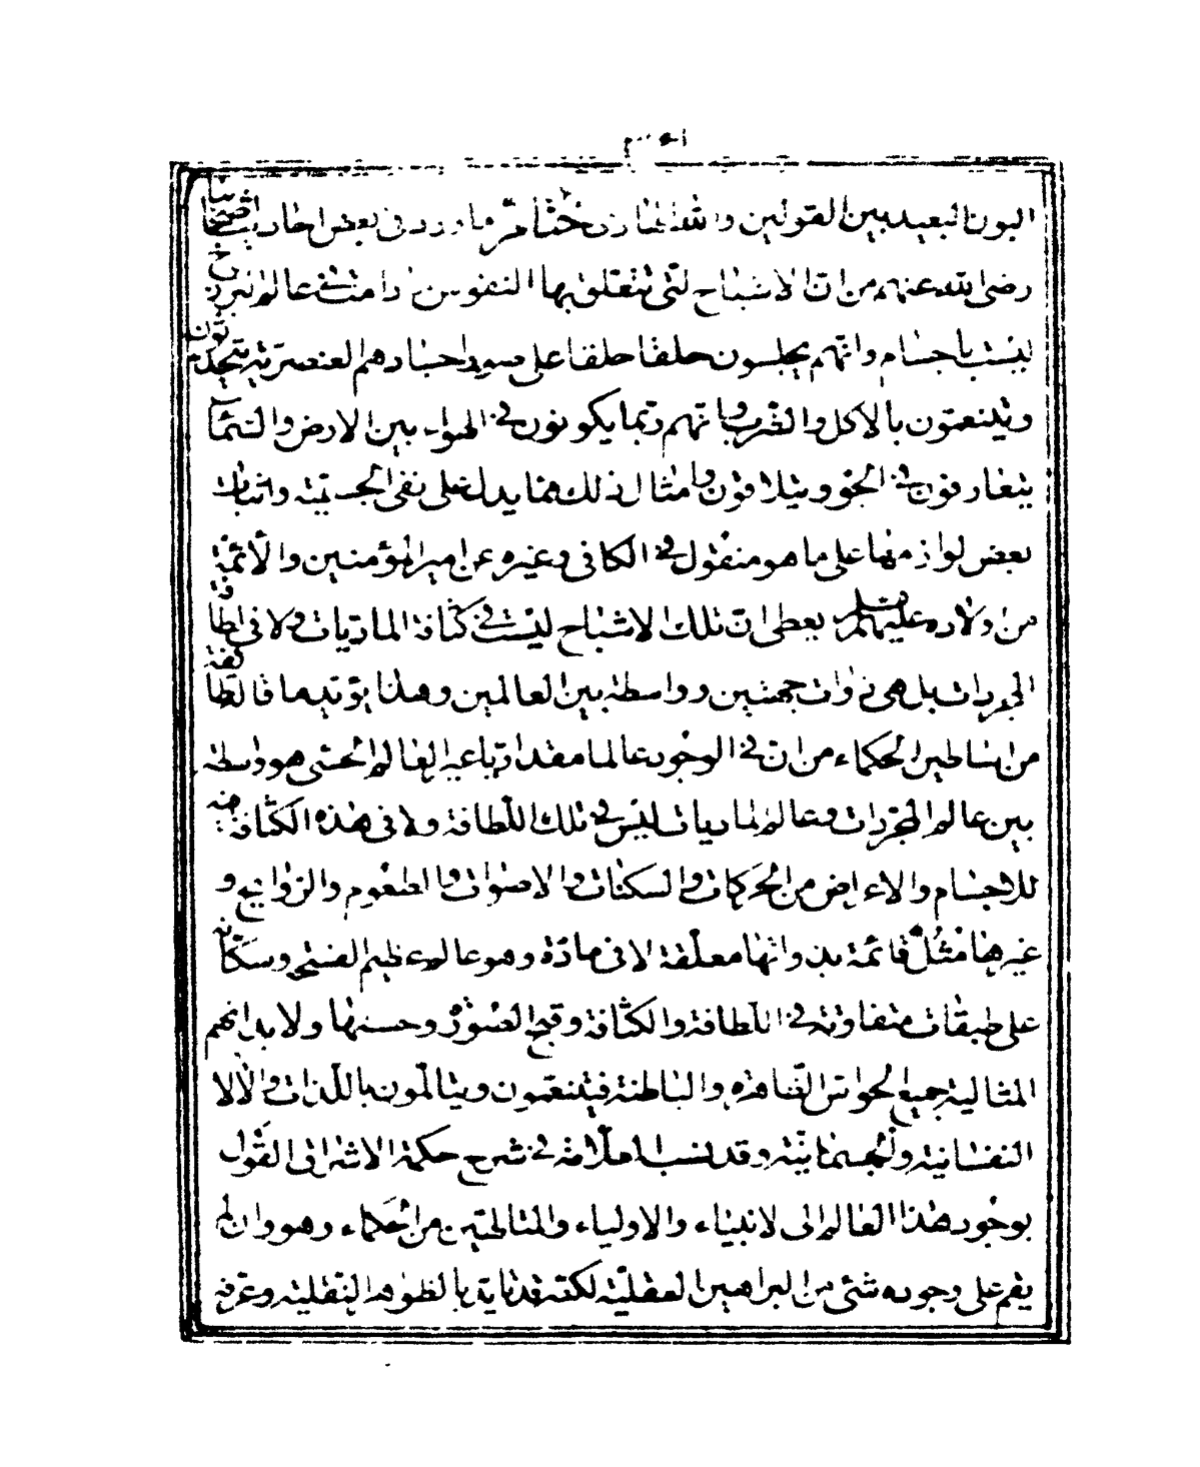 البون البعيد بين القولين والله الهادي خاتمة ما ورد فى بعض احاديث اصحابنا
رضى الله عنهم من ان الاشباح التى تتعلق بها النفوس ما دامت فى عالم البرزخ
ليست باجسام وانهم يجلسون حلقا حلقا على صور اجسادهم العنصرية يتحدثون
ويتنعمون بالاكل والشرب وانهم ربما يكونون فى الهواء بين الارض والسماء
يتعارفون فى الجو ويتلاقون وامثال ذلك مما يدل على نفى الجسمية واثبات
بعض لوازمها على ما هو منقول فى الكافى وغيره عن امير المؤمنين والائمة
من اولاده عليهم السلم يعطى ان تلك الاشباح ليست فى كثافة الماديات ولا فى لطافة
المجردات بل هى ذوات جهتين وواسطة بين العالمين وهذا يؤيد ما قاله طائفة
من اساطين الحكماء من ان فى الوجود عالما مقداريا غير العالم الحسى هو واسطة
بين عالم المجردات وعالم الماديات ليس فى تلك اللطافة ولا فى هذه الكثافة فيه
للاجسام والاعراض من الحركات والسكنات والاصوات والطعوم والروايح و
غيرها مُثُل قائمة بذواتها معلقة لا فى مادّة وهو عالم عظيم الفسحة وسكّانه
على طبقات متفاوتة فى اللطافة والكثافة وقبح الصور وحسنها ولابدانهم
المثالية جميع الحواس الظاهرة والباطنة فيتنعمون ويتالمون باللذات والآلا
النفسانية والجسمانية وقد نسب العلامة فى شرح حكمة الاشراق القول
بوجود هذا العالم الى الانبياء والاولياء والمتالهين من الحكماء وهو وان لم
يقم على وجوده شئ من البراهين العقلية لكنه قد تايد بالظواهر النقلية وعرفه